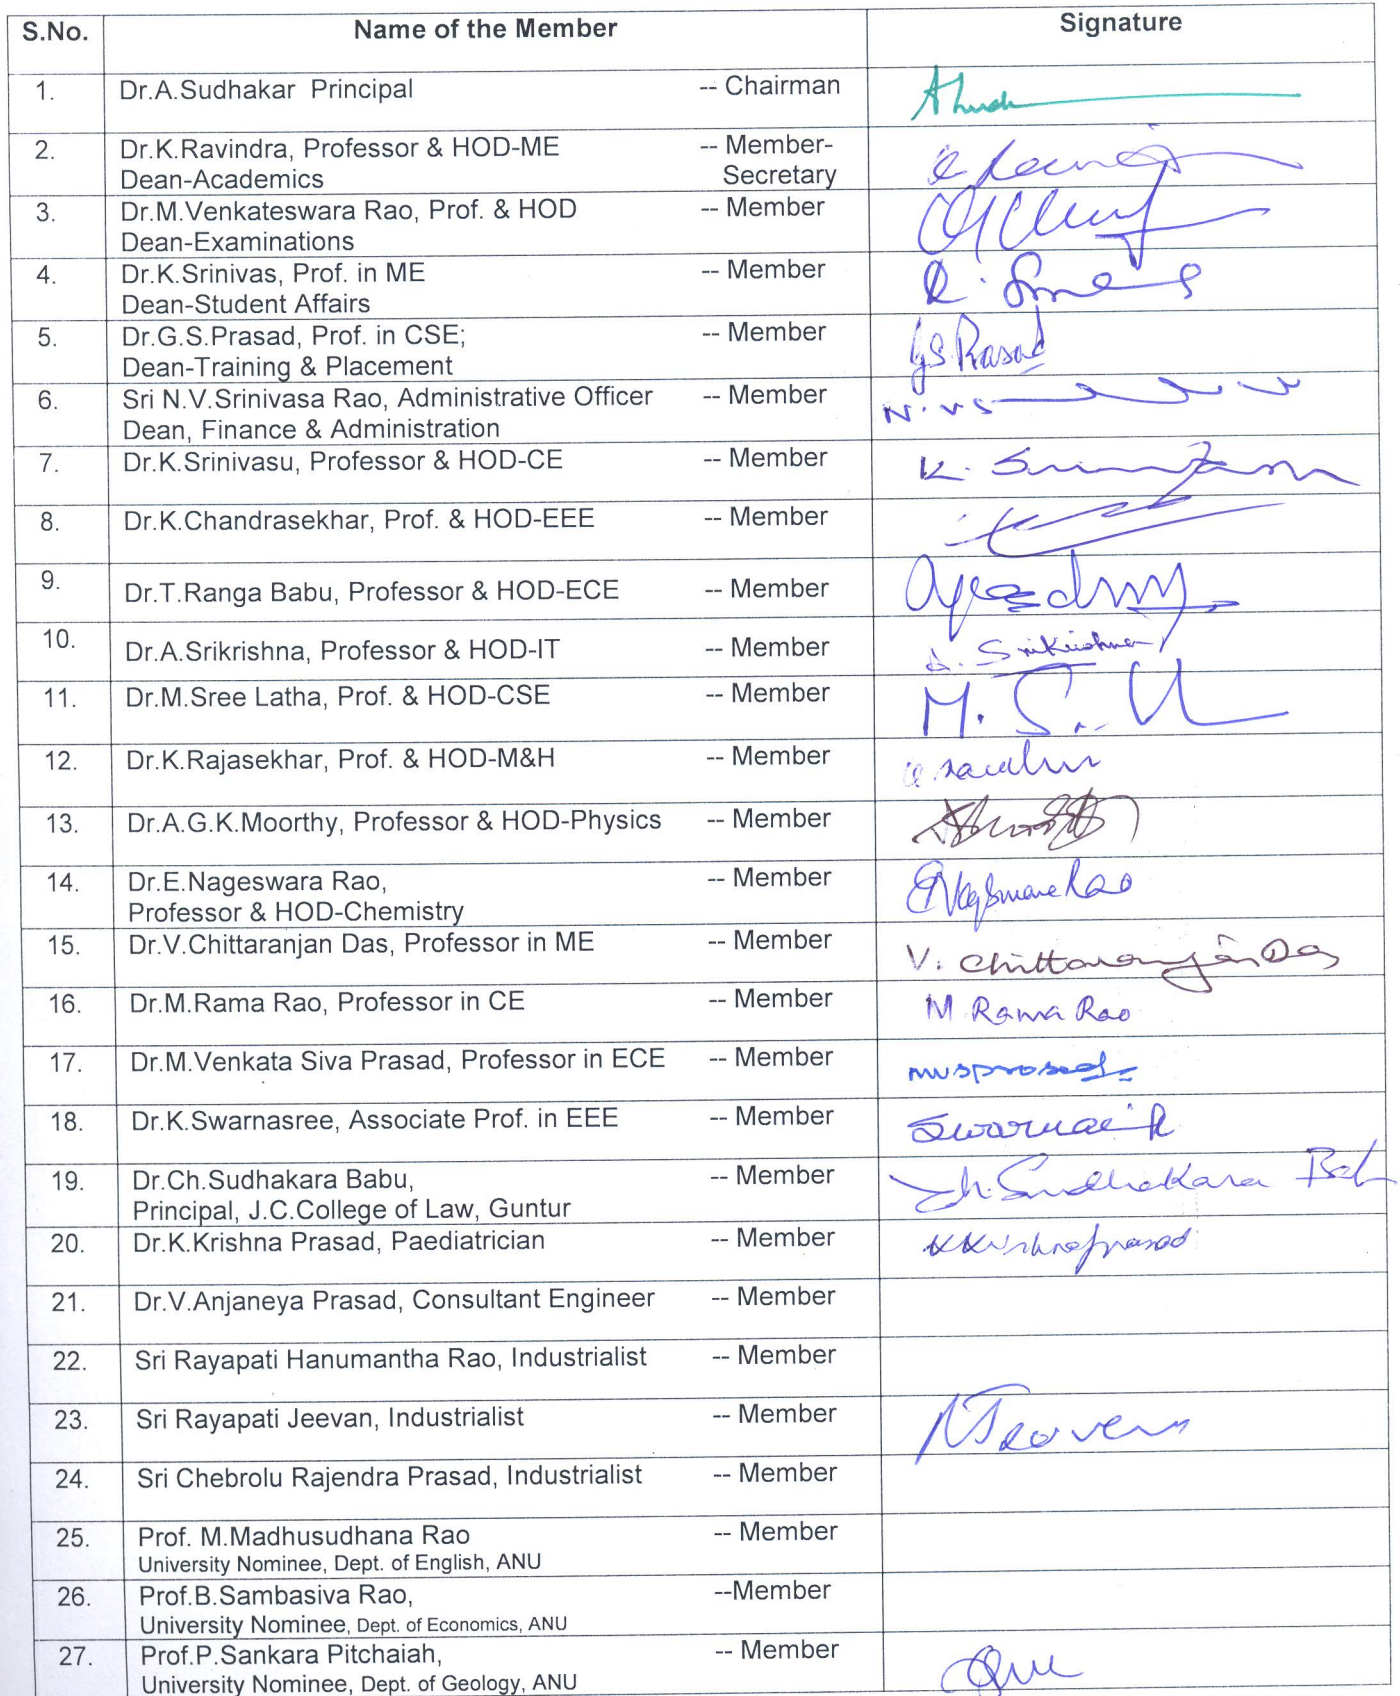 S.No. Name of the Member Signature
1. Dr.A.Sudhakar Principal -- Chairman
2. Dr.K.Ravindra, Professor & HOD-ME -- Member-
Dean-Academics Secretary
3. Dr.M.Venkateswara Rao, Prof. & HOD -- Member
Dean-Examinations
4. Dr.K.Srinivas, Prof. in ME -- Member
Dean-Student Affairs
5. Dr.G.S.Prasad, Prof. in CSE; -- Member GS.Prasad
Dean-Training & Placement
6. Sri N.V.Srinivasa Rao, Administrative Officer -- Member N.VS
Dean, Finance & Administration
7. Dr.K.Srinivasu, Professor & HOD-CE -- Member
8. Dr.K.Chandrasekhar, Prof. & HOD-EEE -- Member
9. Dr.T.Ranga Babu, Professor & HOD-ECE -- Member
10. Dr.A.Srikrishna, Professor & HOD-IT -- Member A. Srikrishna
11. Dr.M.Sree Latha, Prof. & HOD-CSE -- Member
12. Dr.K.Rajasekhar, Prof. & HOD-M&H -- Member
13. Dr.A.G.K.Moorthy, Professor & HOD-Physics -- Member
14. Dr.E.Nageswara Rao, -- Member ENageswara Rao
Professor & HOD-Chemistry
15. Dr.V.Chittaranjan Das, Professor in ME -- Member V. Chittaranjan Das
16. Dr.M.Rama Rao, Professor in CE -- Member M Rama Rao
17. Dr.M.Venkata Siva Prasad, Professor in ECE -- Member mvsprasad
18. Dr.K.Swarnasree, Associate Prof. in EEE -- Member
19. Dr.Ch.Sudhakara Babu, -- Member Ch.Sudhakara Bab
Principal, J.C.College of Law, Guntur
20. Dr.K.Krishna Prasad, Paediatrician -- Member KKrishnaprasad
21. Dr.V.Anjaneya Prasad, Consultant Engineer -- Member
22. Sri Rayapati Hanumantha Rao, Industrialist -- Member
23. Sri Rayapati Jeevan, Industrialist -- Member
24. Sri Chebrolu Rajendra Prasad, Industrialist -- Member
25. Prof. M.Madhusudhana Rao -- Member
University Nominee, Dept. of English, ANU
26. Prof.B.Sambasiva Rao, --Member
University Nominee, Dept. of Economics, ANU
27. Prof.P.Sankara Pitchaiah, -- Member
University Nominee, Dept. of Geology, ANU